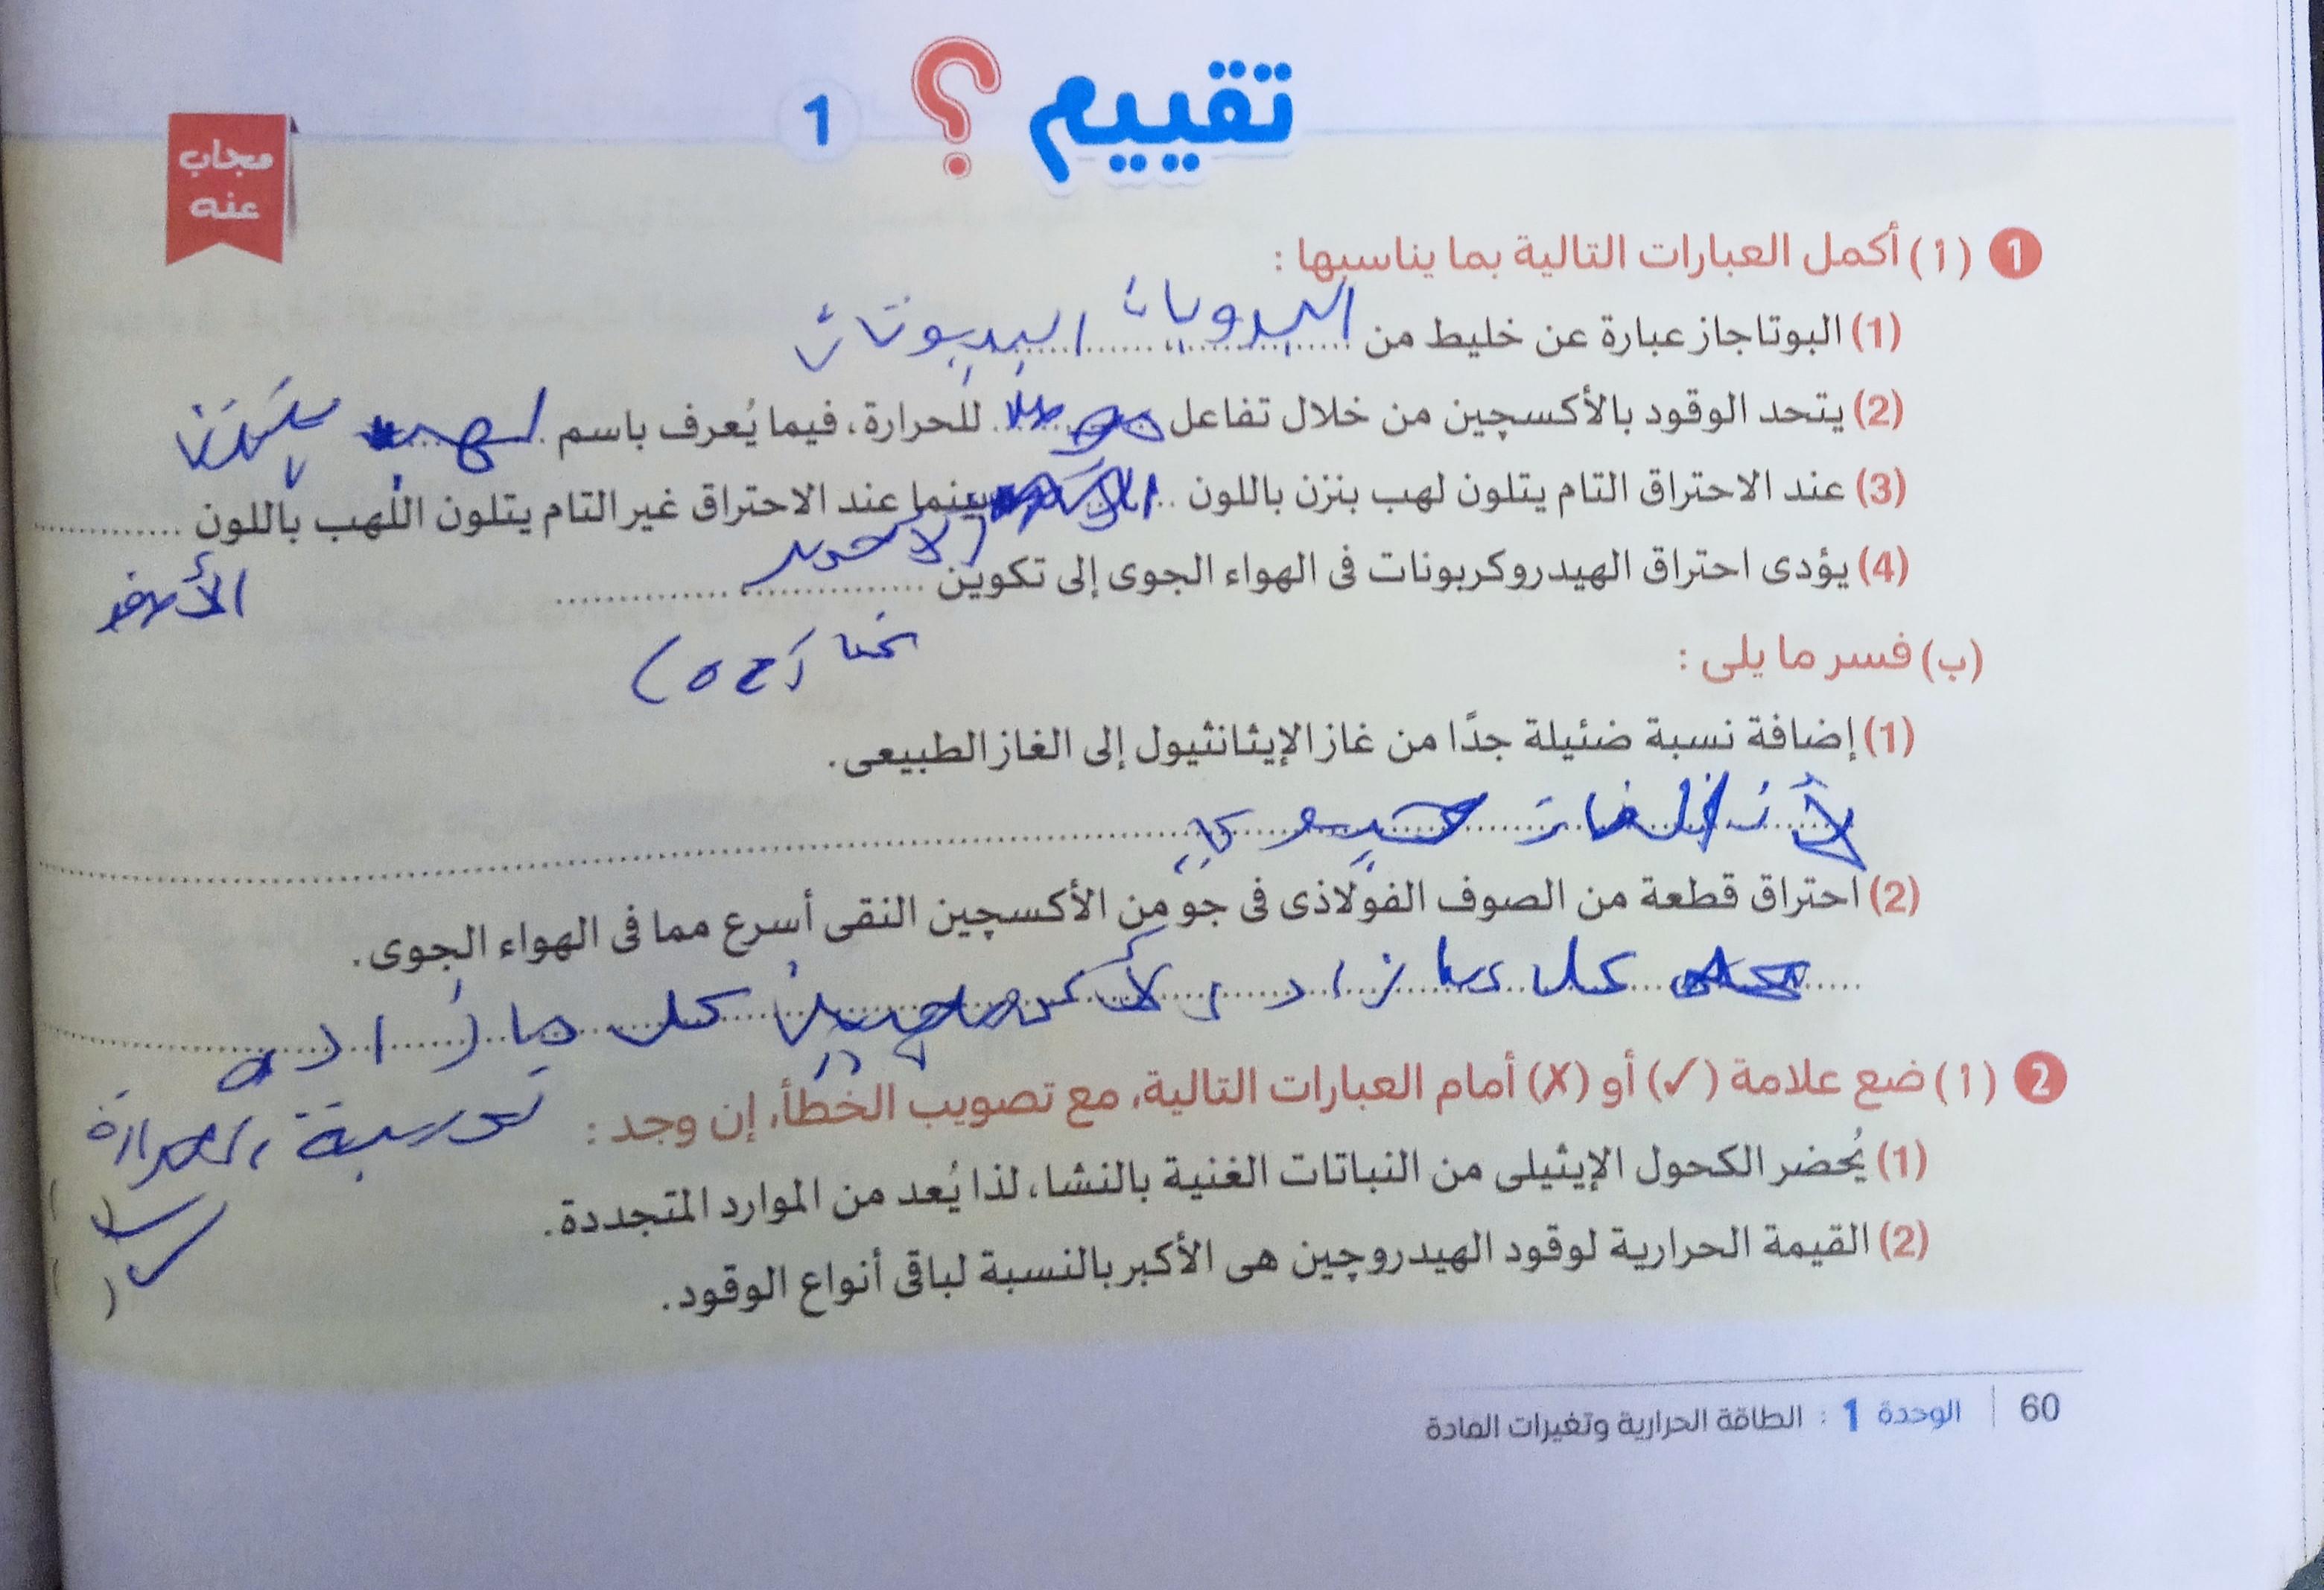 تقييم ؟ 1
مجاب
عنه
1 (أ) أكمل العبارات التالية بما يناسبها :
(1) البوتاجاز عبارة عن خليط من البروبان البيوتان
(2) يتحد الوقود بالأكسچين من خلال تفاعل للحرارة، فيما يُعرف باسم لهب بنزن
(3) عند الاحتراق التام يتلون لهب بنزن باللون بينما عند الاحتراق غير التام يتلون اللهب باللون
(4) يؤدى احتراق الهيدروكربونات فى الهواء الجوى إلى تكوين
(ب) فسر ما يلى :
(1) إضافة نسبة ضئيلة جدًا من غاز الإيثانثيول إلى الغاز الطبيعى.
(2) احتراق قطعة من الصوف الفولاذى فى جو من الأكسچين النقى أسرع مما فى الهواء الجوى.
كل ما زاد كل ما زاده
2 (أ) ضع علامة (✓) أو (✗) أمام العبارات التالية، مع تصويب الخطأ، إن وجد :
الحرارة
(1) يُحضر الكحول الإيثيلى من النباتات الغنية بالنشا، لذا يُعد من الموارد المتجددة. ( ✓ )
(2) القيمة الحرارية لوقود الهيدروچين هى الأكبر بالنسبة لباقى أنواع الوقود. ( ✓ )
60 | الوحدة 1 : الطاقة الحرارية وتغيرات المادة